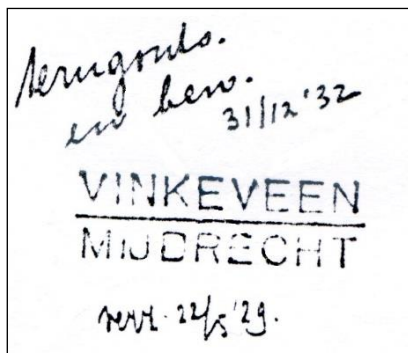 terugontv.
en bew.
31/12 '32
VINKEVEEN
MIJDRECHT
verz. 22/5 '29.